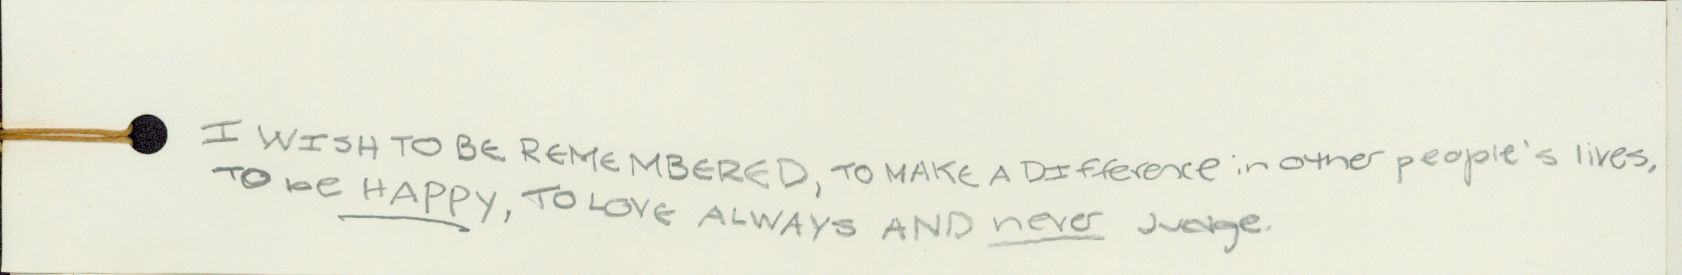 I WISH TO BE REMEMBERED, TO MAKE A DIfference in other people's lives,
TO be HAPPY, TO LOVE ALWAYS AND never Judge.